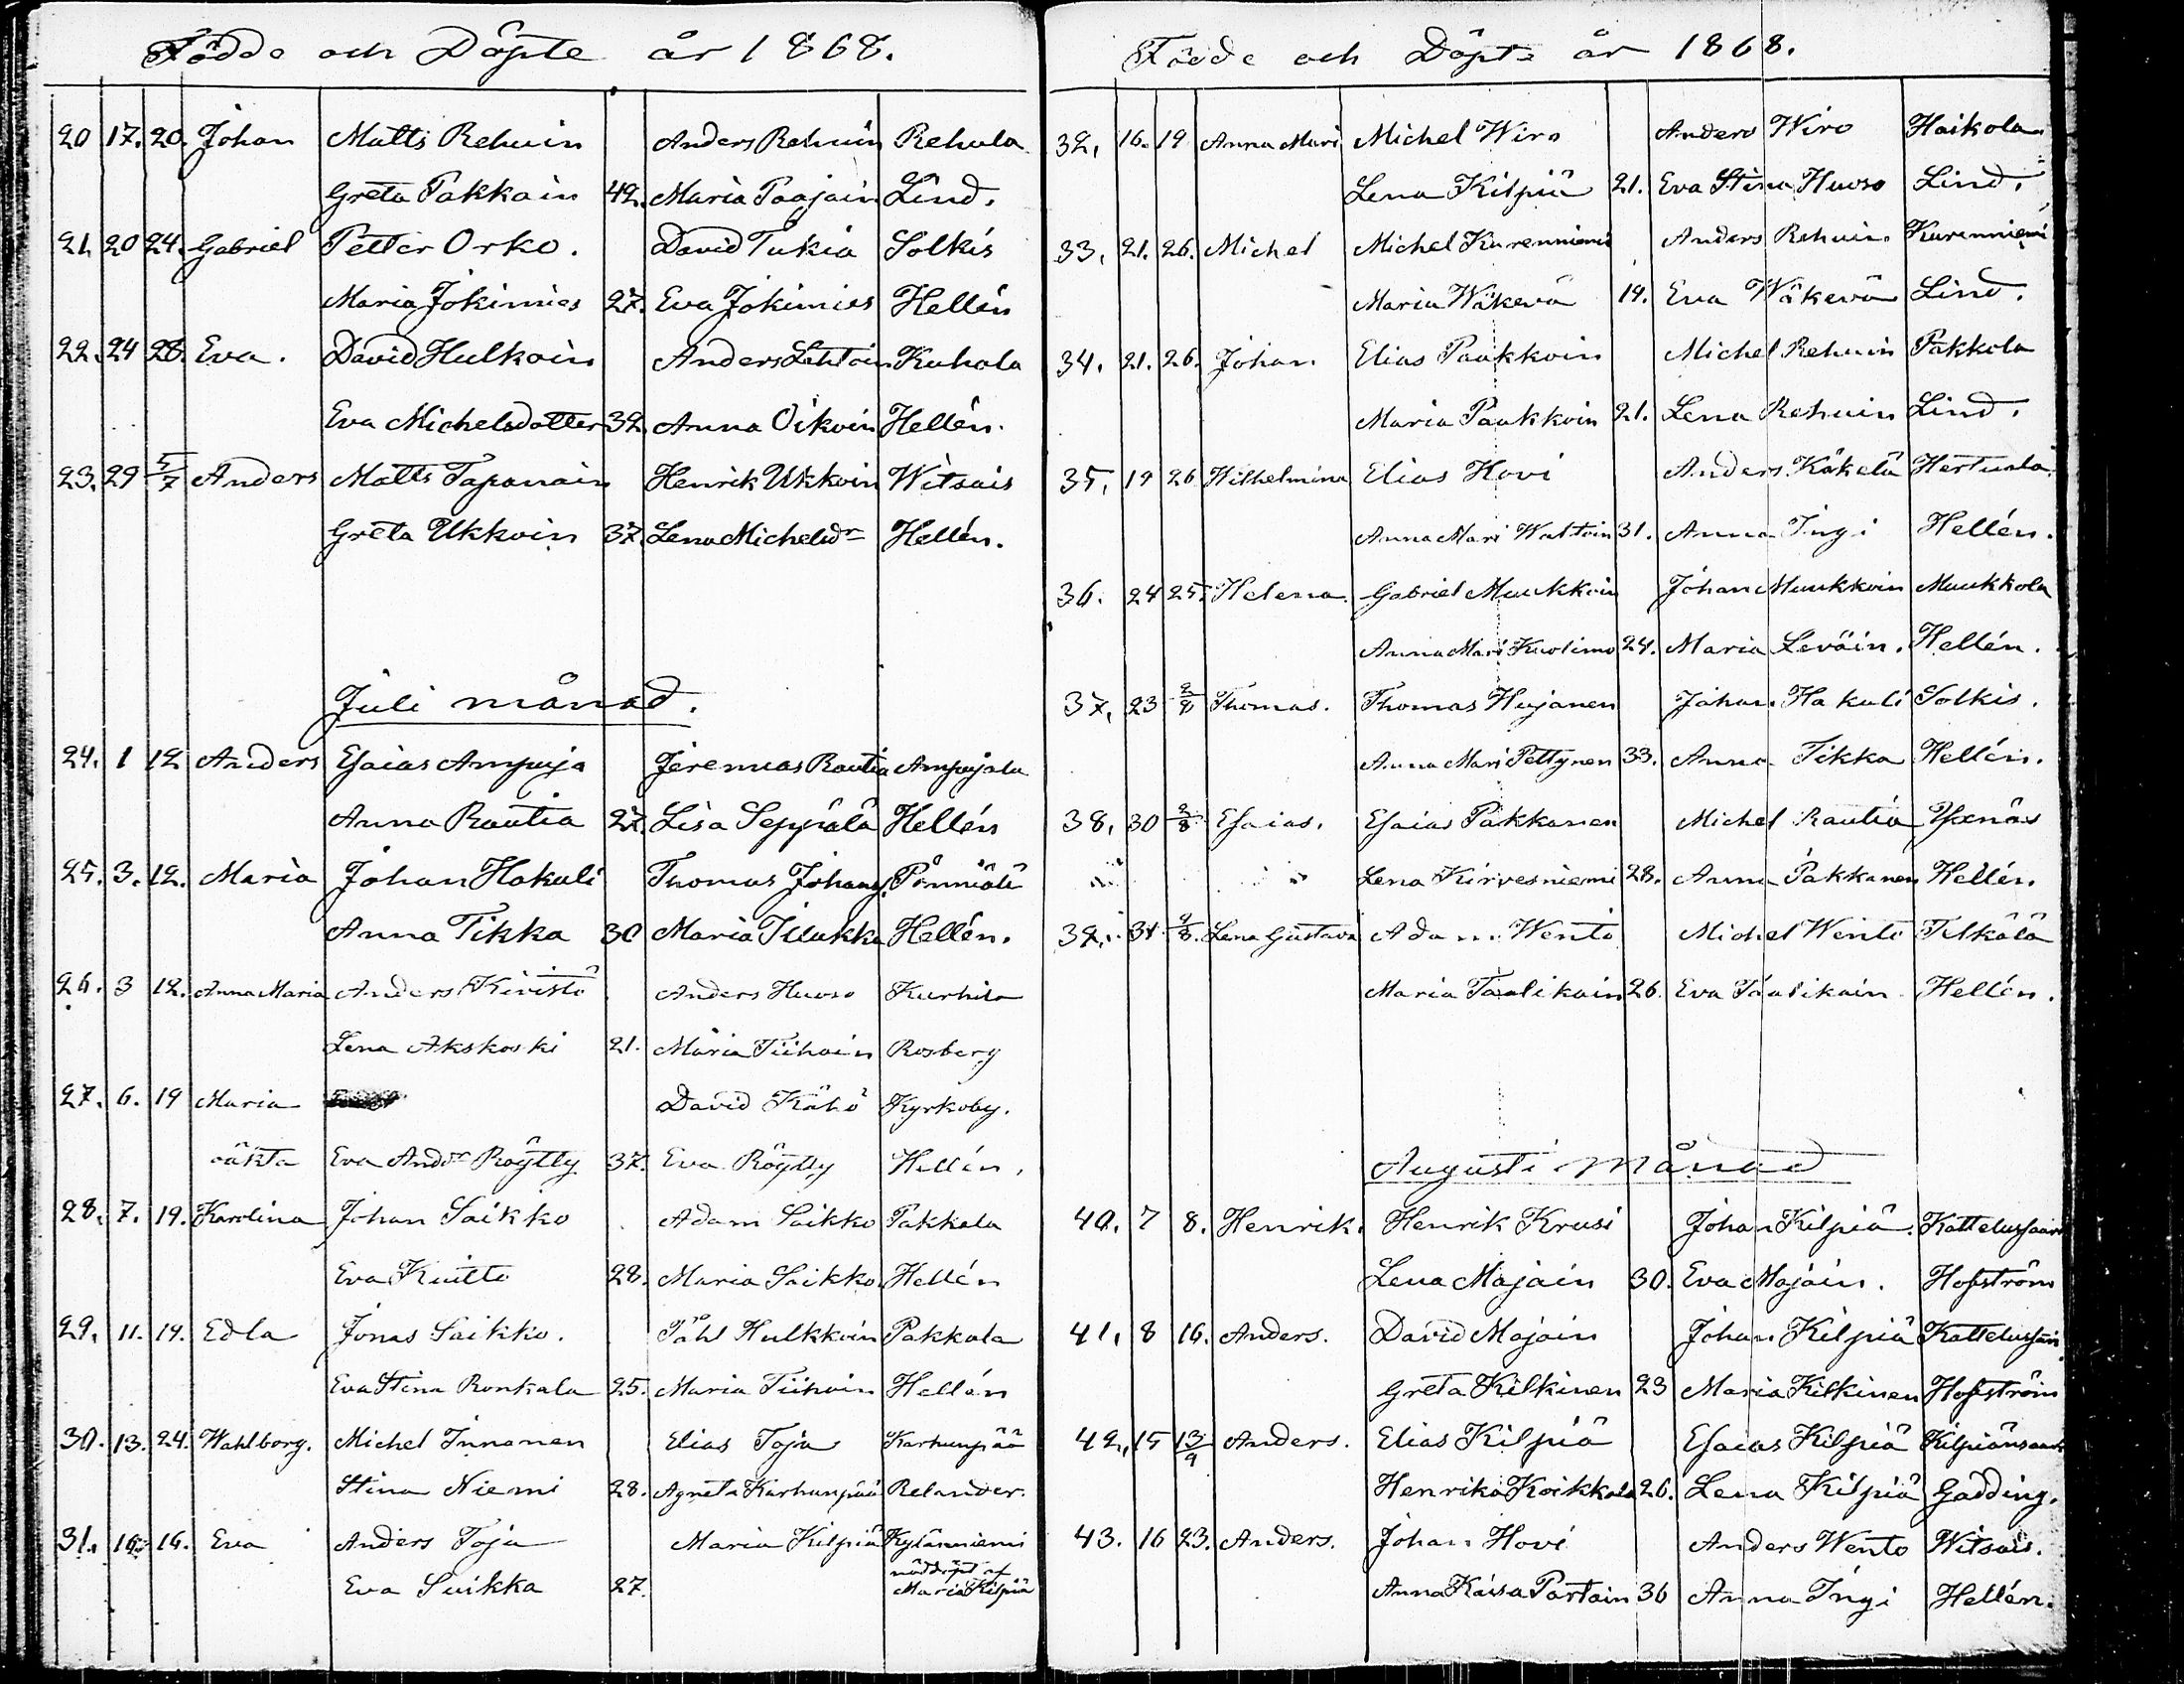 Födde och Döpte år 1868.
20 17. 20. Johan Matts Rehuin Anders Rehuin Rehula
Greta Pakkain 42. Maria Paajain Lind.
21. 20 24. Gabriel Petter Orko. David Tukia Solkis
Maria Jokimies 27. Eva Jokimies Hellén
22. 24 28. Eva. David Hulkoin Anders Lehtoin Kuhala
Eva Michelsdotter 32. Anna Oikoin Hellén.
23. 29 5/7 Anders Matts Tapanain Henrik Ukkoin Witsais
Greta Ukkoin 37. Lena Michelsdr Hellén.
Juli månad.
24. 1 12 Anders Esaias Ampuja Jeremias Rautia Ampujala
Anna Rautia 27. Lisa Seppälä Hellén
25. 3. 12. Maria Johan Hakuli Thomas Pönniälä
Anna Tikka 30 Maria Hellén.
26. 3 12. Anna Maria Anders Kivistö Anders Huoso Kurhila
Lena Akskoski 21. Maria Tiihoin Rosberg
27. 6. 19 Maria David Kähö Kyrkoby.
oäkta Eva Andr Röytty 37. Eva Röytty Hellén.
28. 7. 19. Karolina Johan Saikko Adam Saikko Pakkala
Eva Kuitto 28. Maria Saikko Hellén
29. 11. 19. Edla Jonas Saikko. Påhl Hulkkoin Pakkala
Eva Stina Ronkala 25. Maria Tiihoin Hellén
30. 13. 24. Wahlborg. Michel Innanen Elias Toja Karhunpää
Stina Niemi 28. Agneta Karhunpää Relander.
31. 16. Eva Anders Toja Maria Kilpiä Kylänniemi
Eva Suikka 27. nöddöpt af
Maria Kilpiä
Födde och Döpte år 1868.
32, 16. 19 Anna Mari Michel Wiro Anders Wiro Haikola
Lena Kilpiä 21. Eva Stina Huoso Lind.
33, 21. 26. Michel Michel Kurenniemi Anders Rehuin Kurenniemi
Maria Wäkevä 19. Eva Wäkevä Lind.
34. 21. 26. Johan Elias Paukkoin Michel Rehuin Pakkola
Maria Paukkoin 21. Lena Rehuin Lind.
35, 19 26 Wilhelmina Elias Hovi Anders Käkelä Hertuala.
Anna Mari 31. Anna Ingi Hellén.
36. 24 25. Helena. Gabriel Muukkoin Johan Muukkoin Muukkola
Anna Mari Kuolimo 24. Maria Leväin. Hellén.
37, 23 2/8 Thomas. Thomas Hujanen Johan Hakuli Solkis.
Anna Mari Pettynen 33. Anna Tikka Hellén.
38, 30 2/8 Esaias. Esaias Pakkanen Michel Rautia Yxnäs
Lena Kirvesniemi 28. Anna Pakkanen Hellén.
39. 31 2/8. Lena Gustava Adam Wento Michel Wento Telkälä
Maria Taalikain 26. Eva Taalikain Hellén.
Augusti Månad
40. 7 8. Henrik. Henrik Krusi Johan Kilpiä. Kattelussaari
Lena Majain 30. Eva Majain. Hofström
41. 8 16. Anders. David Majain Johan Kilpiä
Greta Kilkinen 23 Maria Kilkinen Hofström
42, 15 13/9 Anders. Elias Kilpiä Esaias Kilpiä Kilpiänsaari
Henrika Koikkala 26. Lena Kilpiä Gadding.
43. 16 23. Anders. Johan Hovi Anders Wento Witsais.
Anna Kaisa Partain 36 Anna Ingi Hellén.